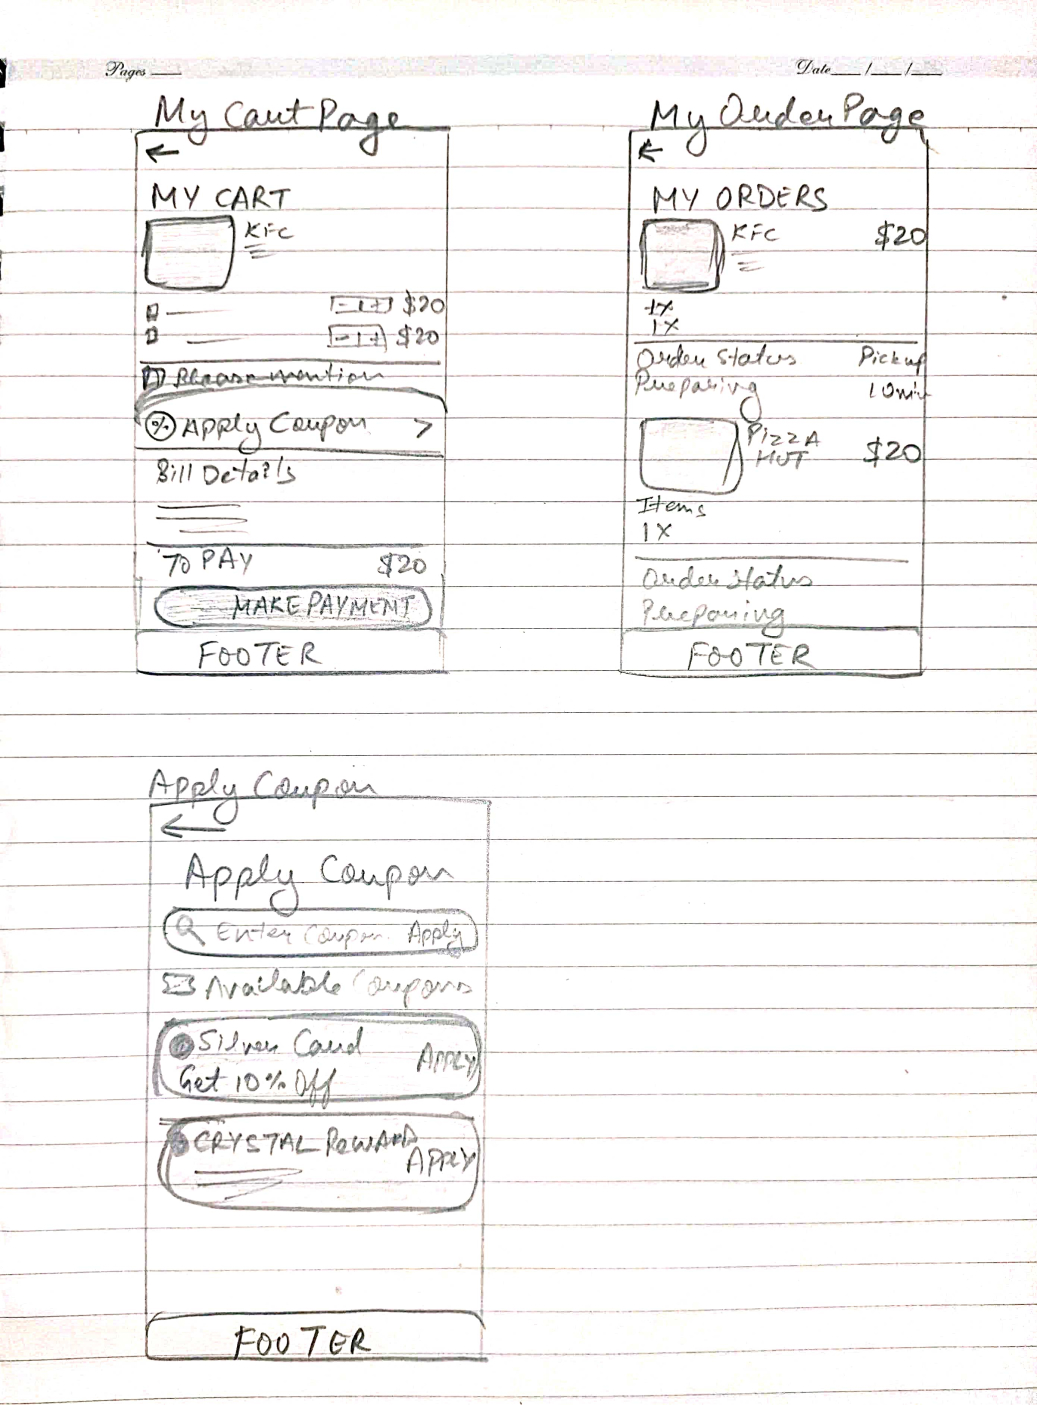 Pages
Date / /
My Cart Page
MY CART
KFC
- 1 + $20
- 1 + $20
Please mention
% Apply Coupon >
Bill Details
TO PAY $20
MAKE PAYMENT
FOOTER
My Order Page
MY ORDERS
KFC $20
1X
1X
Order Status Pickup
Preparing 10 min
PIZZA
HUT $20
Items
1X
Order Status
Preparing
FOOTER
Apply Coupon
Apply Coupon
Enter Coupon Apply
Available Coupons
Silver Card
APPLY
Get 10% Off
CRYSTAL REWARD
APPLY
FOOTER